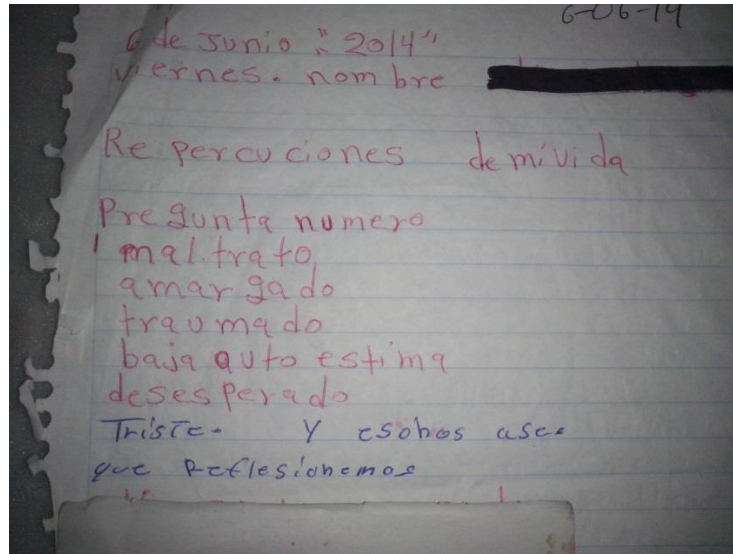 6-06-14
6 de Junio "2014"
viernes. nombre
Re percuciones demivida
Pregunta numero
1 maltrato
amargado
traumado
baja auto estima
desesperado
Triste. Y esohos ase.
que Reflesionemos